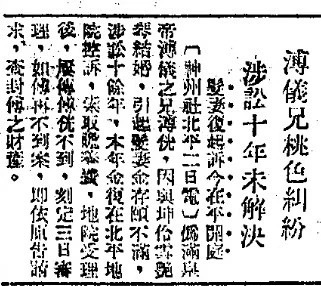 溥儀兄桃色糾紛
涉訟十年未解決
髮妻復起訴今在平開庭
〔神州社北平二日電〕僞滿皇
帝溥儀之兄溥侊，因與坤伶雪艷
琴結婚，引起髮妻金存頤不滿，
涉訟十餘年，本年金復在北平地
院控訴，索取贍養費，地院受理
後，屢傳傅侊不到，刻定三日審
理，如傅再不到案，即依原告請
求，查封傅之財產。